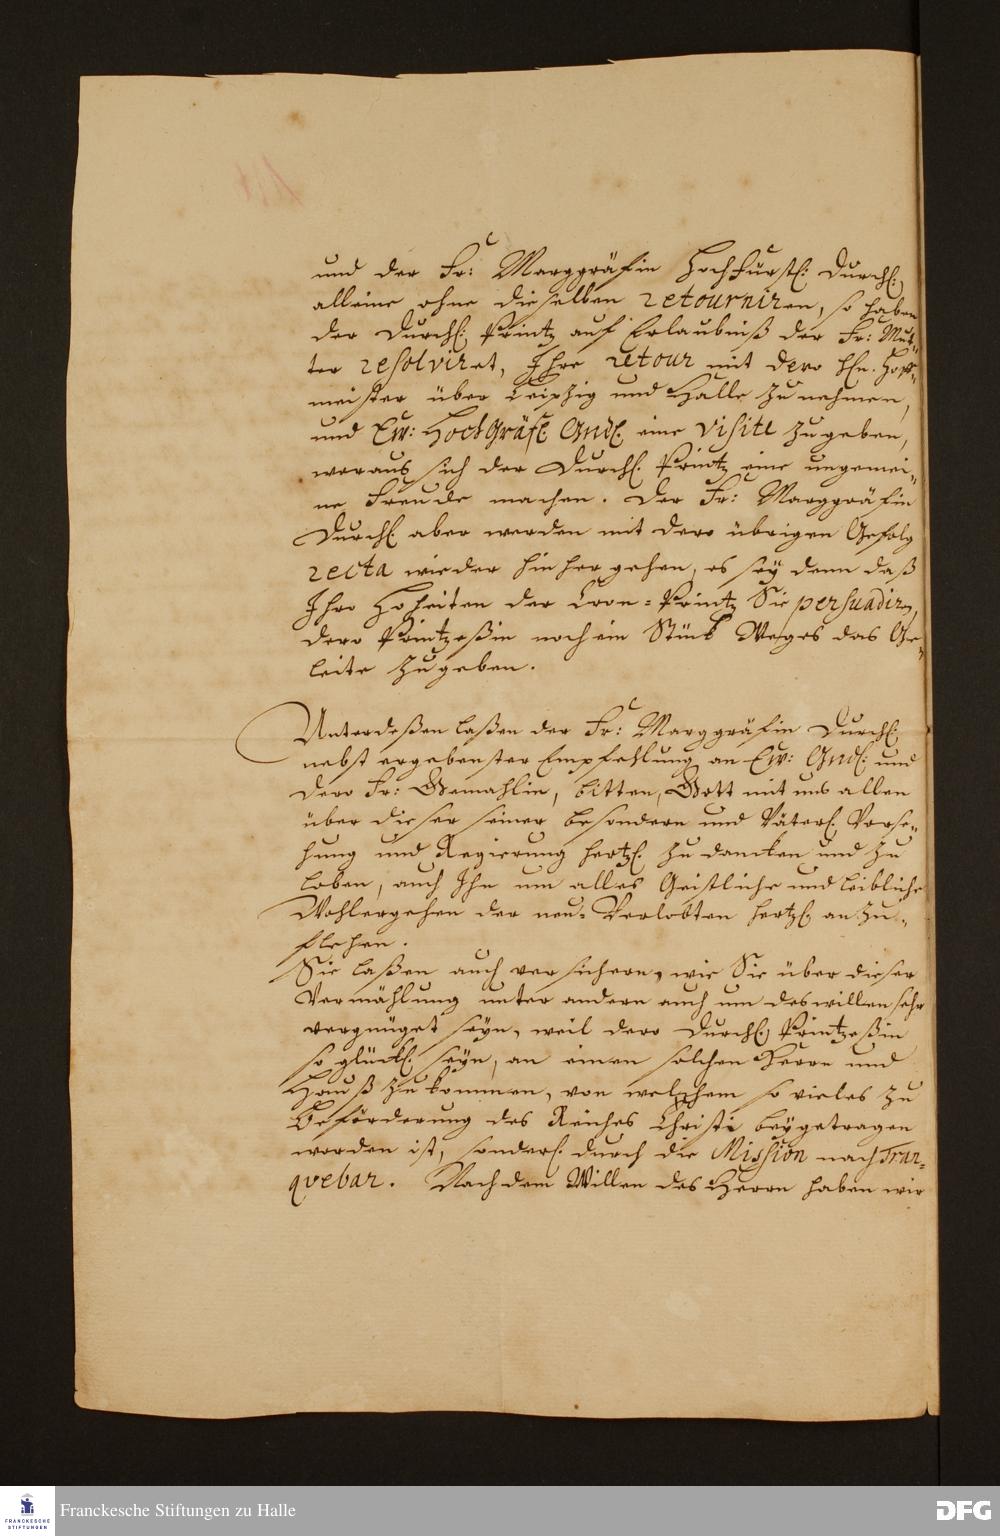 und der Fr: Marggräfin Hochfürstl: Durchl:
alleine ohne dieselben retourniren, so haben
der Durchl: Printz auf Erlaubniß der Fr: Mut-
ter resolviret, Ihre retour mit dero Hn. Hoff-
meister über Leipzig und Halle zu nehmen,
und Ew: HochGräfl. Gnd. eine visite zu geben,
woraus sich der Durchl. Printz eine ungemei-
ne Freude machen. Der Fr: Marggräfin
Durchl. aber werden mit dero übrigen Gefolg
recta wieder hinher gehen, es sey denn daß
Ihro Hoheiten der Cron-Printz Sie persuadirn,
dero Printzeßin noch ein Stück Weges das Ge-
leite zu geben.
Unterdeßen laßen der Fr: Marggräfin Durchl:
nebst ergebenster Empfehlung an Ew: Gnd: und
dero Fr: Gemahlin, bitten, Gott mit uns allen
über dieser seiner besondern und Väterl. Verse-
hung und Regierung hertzl. zu dancken und zu
loben, auch Ihn um alles Geistliche und leibliche
Wohlergehen der neu-Verlobten hertzl. anzu-
flehen.
Sie laßen auch versichern, wie Sie über dieser
Vermählung unter andern auch um deswillen sehr
vergnüget seyn, weil dero Durchl. Printzeßin
so glückl. seyn, an einen solchen Herrn und
Hauß zu kommen, von welchem so vieles zu
Beförderung des Reiches Christi beygetragen
worden ist, sonderl. durch die Mission nach Tran-
qvebar. Nach dem Willen des Herrn haben wir
Franckesche Stiftungen zu Halle
FRANCKESCHE
STIFTUNGEN
DFG